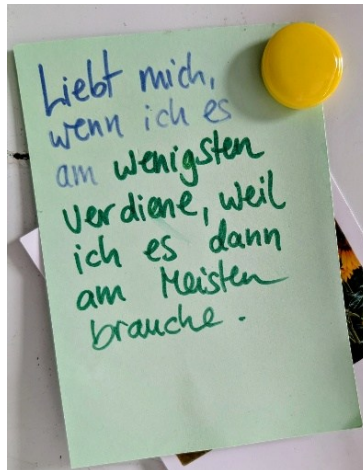 Liebt mich,
wenn ich es
am wenigsten
verdiene, weil
ich es dann
am Meisten
brauche.